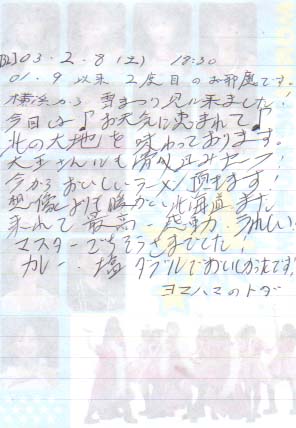 03.2.8(土) 18:30
01.9以来 2度目のお邪魔です。
横浜から 雪まつり見に来ました!
今日は♪お天気に恵まれて♪
北の大地を味わっております。
大王さんにも
今からおいしいラーメン頂きます!
想像よりも暖かい北海道 また
来れて最高ー感動 うれしい
マスターごちそうさまでした!
カレー・塩 ダブルでおいしかったです!
ヨコハマのトダ